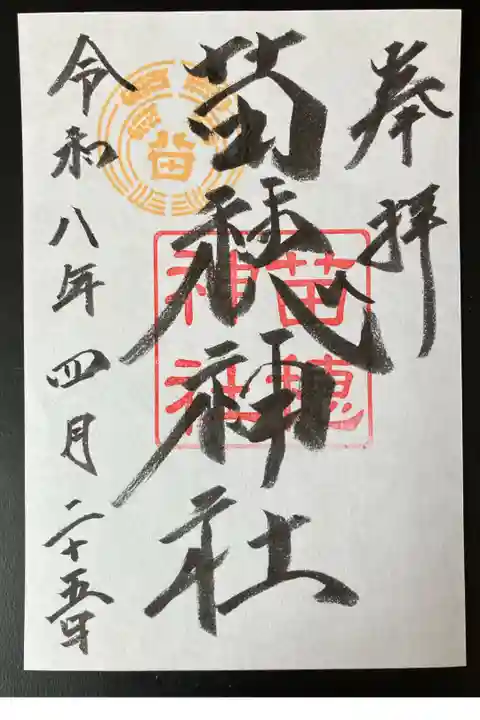 奉拝
苗穂神社
苗穂
神社
苗
令和八年四月二十五日